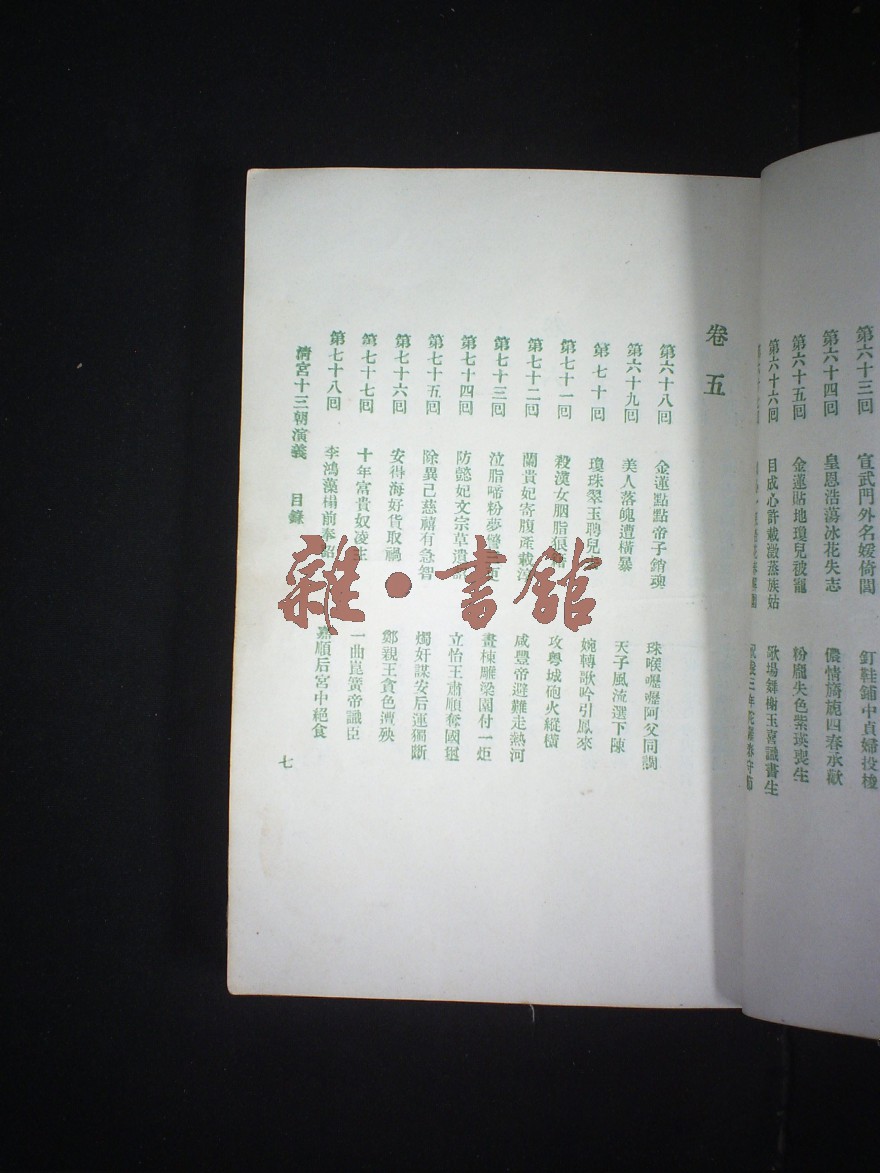 第六十三回 宣武門外名媛倚閭 釘鞋鋪中貞婦投梭
第六十四回 皇恩浩蕩冰花失志 儂情旖旎四春承歡
第六十五回 金蓮貼地瓊兒被寵 粉龐失色紫瑛喪生
第六十六回 目成心許載澂蒸族姑 歌場舞榭玉喜識書生
卷五
第六十八回 金蓮點點帝子銷魂 珠喉嚦嚦阿父同調
第六十九回 美人落魄遭橫暴 天子風流選下陳
第七十回 瓊珠翠玉聘兒 婉轉歌吟引鳳來
第七十一回 殺漢女胭脂狼 攻粵城砲火縱橫
第七十二回 蘭貴妃寄腹產載 咸豐帝避難走熱河
第七十三回 泣脂啼粉夢 畫棟雕梁園付一炬
第七十四回 防懿妃文宗草遺 立怡王肅順奪國璽
第七十五回 除異己慈禧有急智 燭奸謀安后運獨斷
第七十六回 安得海好貨取禍 鄭親王貪色遭殃
第七十七回 十年富貴奴凌主 一曲崑簧帝識臣
第七十八回 李鴻藻榻前奉詔 嘉順后宮中絕食
清宮十三朝演義 目錄
七
雜·書館